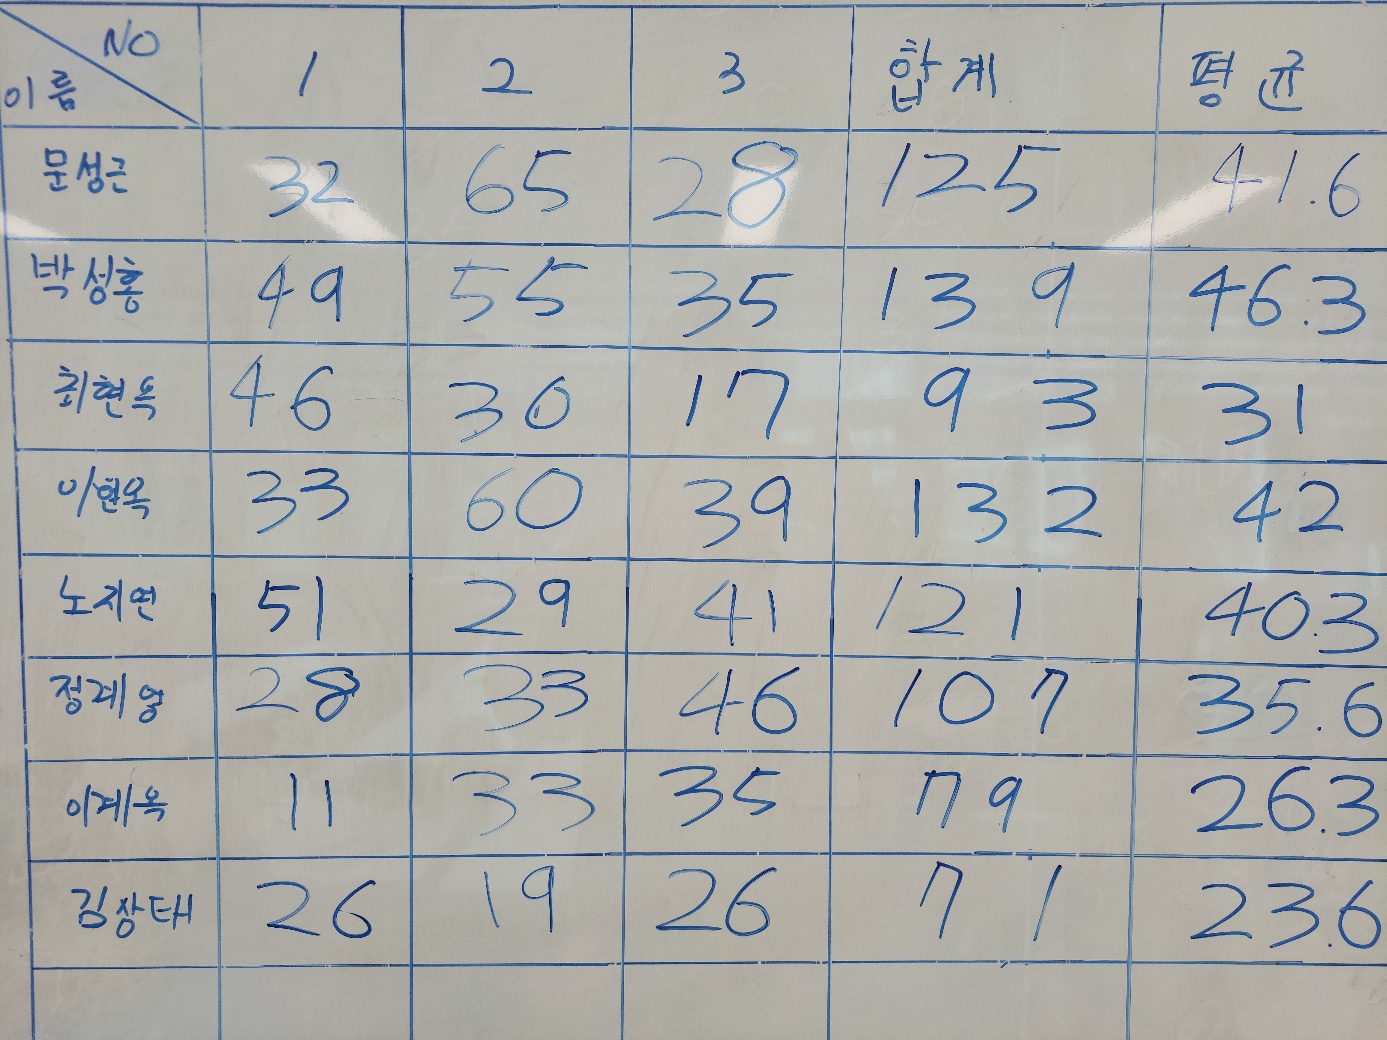 NO
이름 1 2 3 합계 평균
문성근 32 65 28 125 41.6
박성홍 49 55 35 139 46.3
최현옥 46 30 17 93 31
이현옥 33 60 39 132 42
노지연 51 29 41 121 40.3
정계영 28 33 46 107 35.6
이계옥 11 33 35 79 26.3
김상태 26 19 26 71 23.6